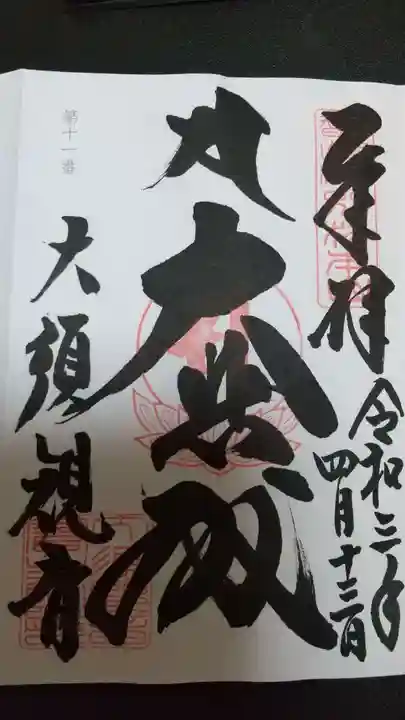 奉拝
令和三年
四月十三日
大悲殿
第十一番
大須観音